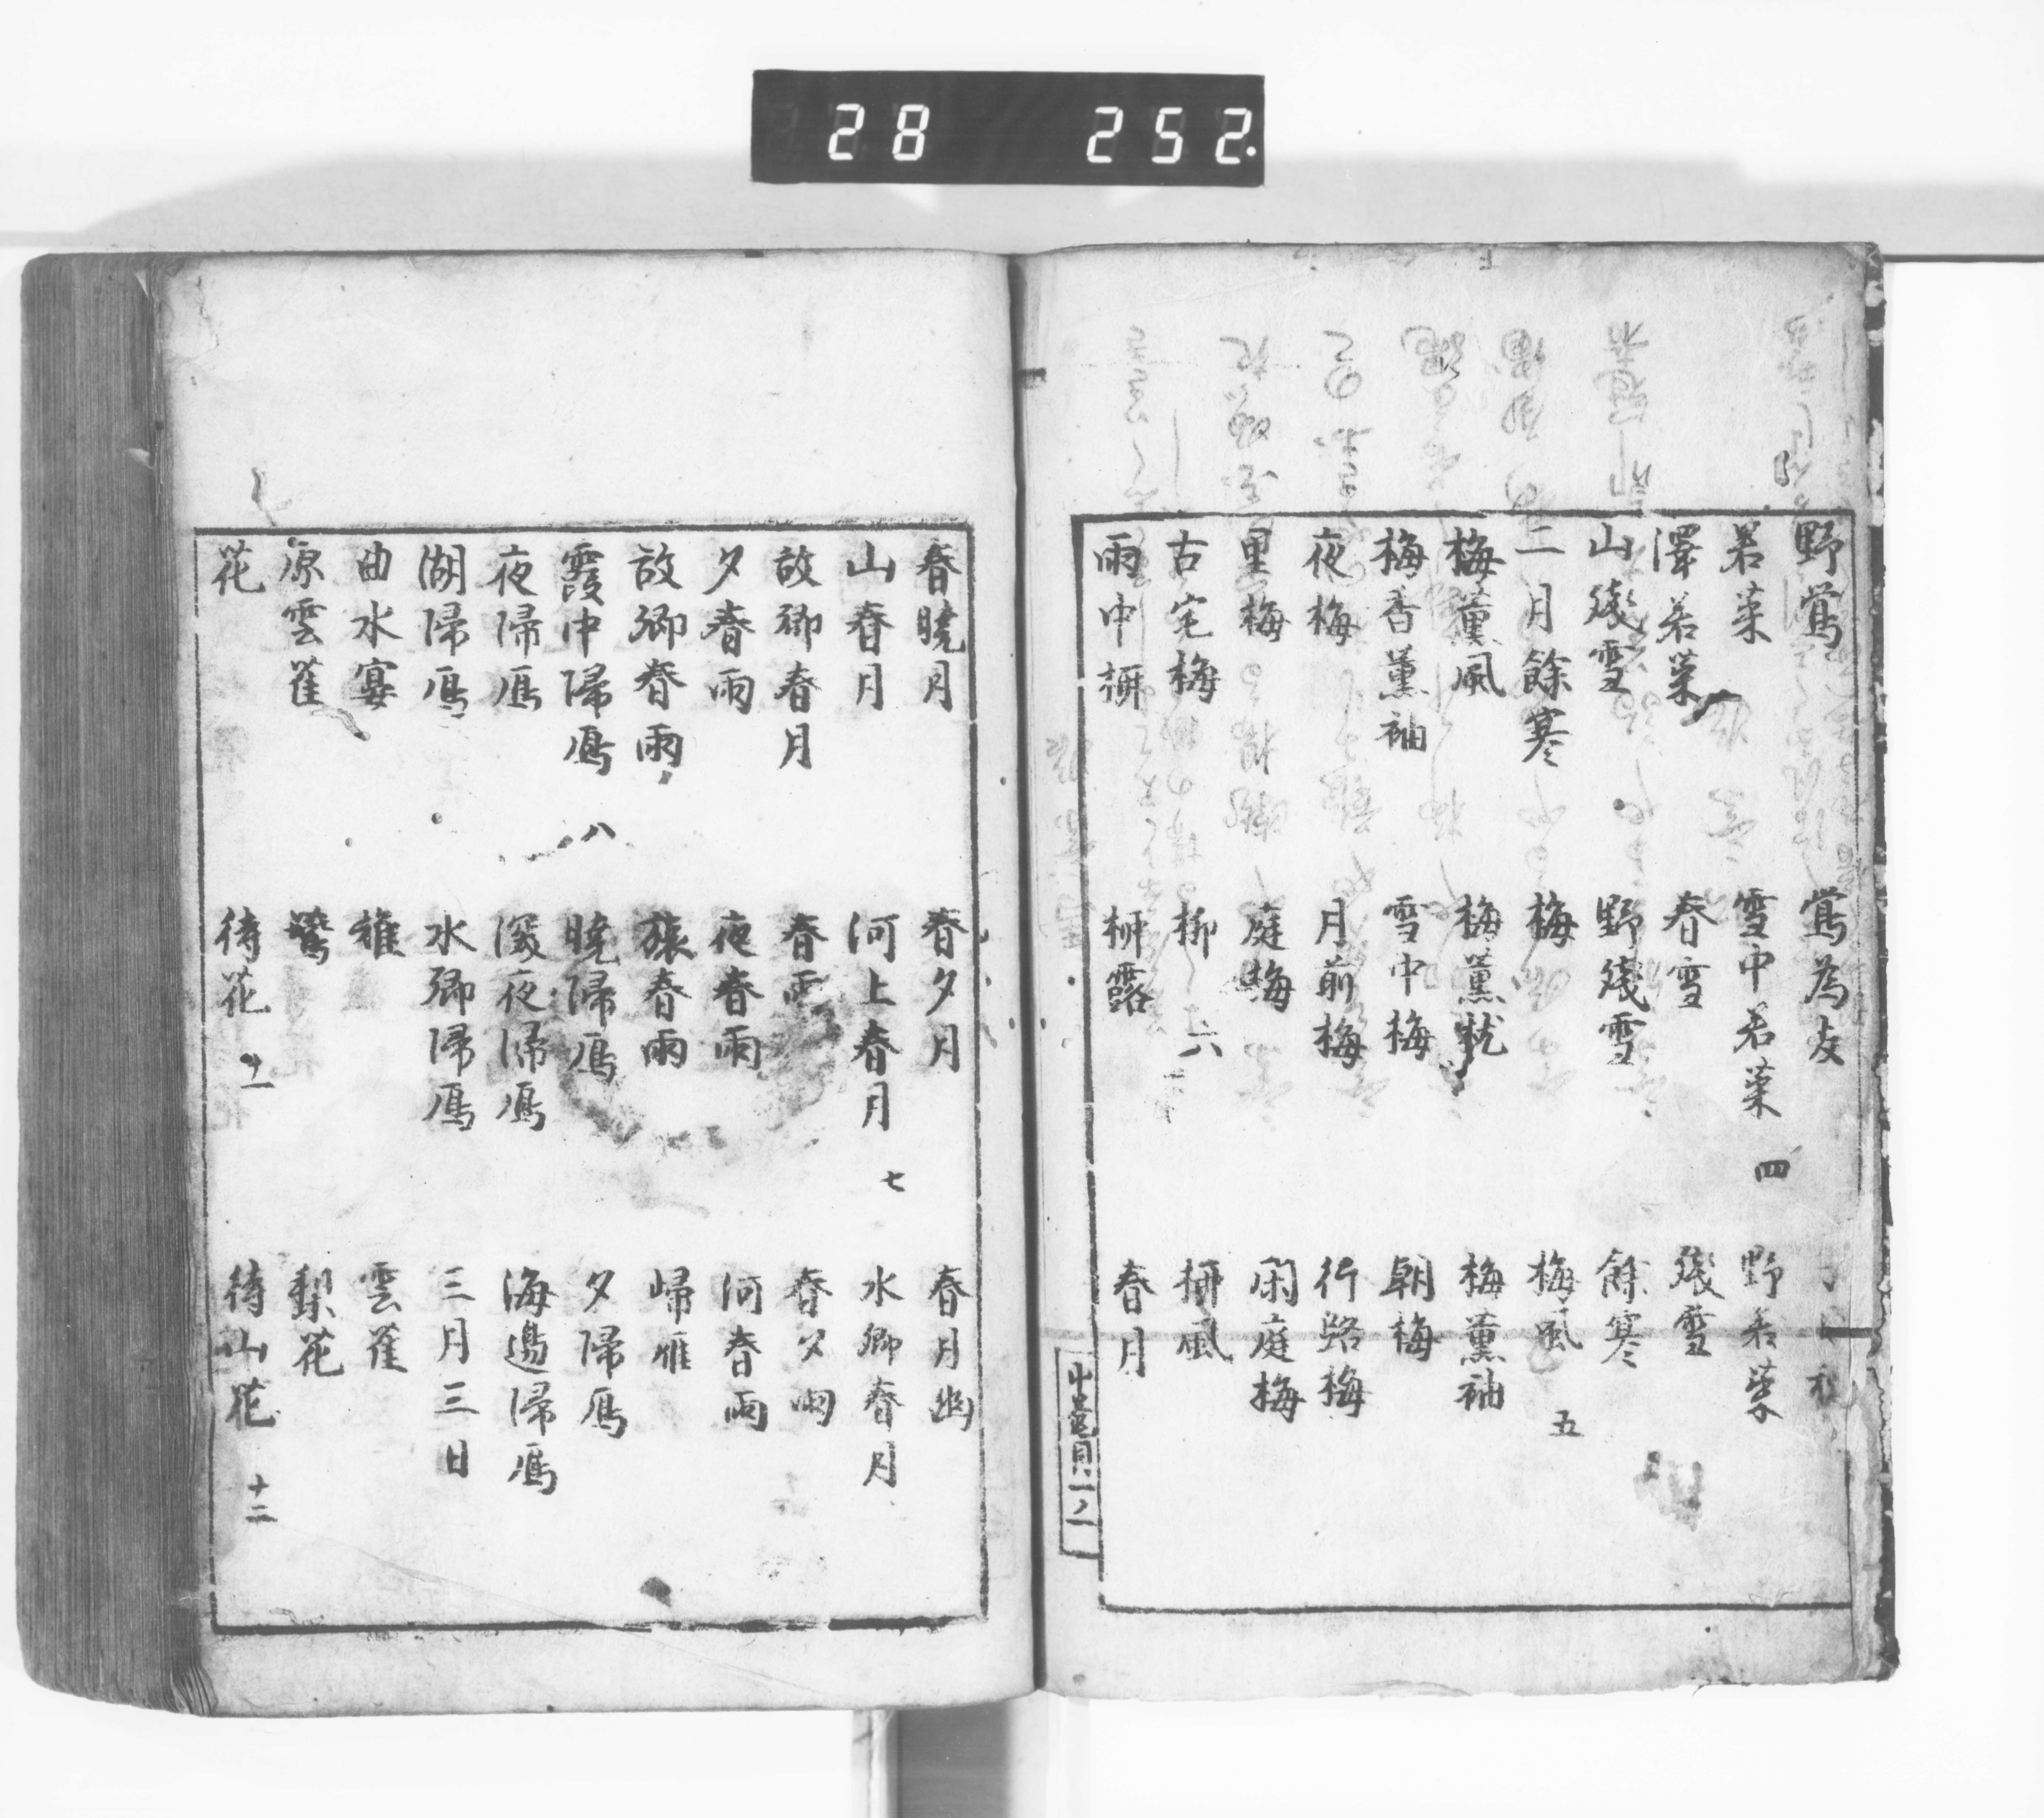 28 252
野鶯 鶯為友
若菜 雪中若菜 四 野若菜
澤若菜 春雪 残雪
山残雪 野残雪 餘寒
二月餘寒 梅 梅風 五
梅薫風 梅薫枕 梅薫袖
梅香薫袖 雪中梅 朝梅
夜梅 月前梅 行路梅
里梅 庭梅 閑庭梅
古宅梅 柳 六 柳風
雨中柳 柳露 春月
春暁月 春夕月 春月幽
山春月 河上春月 七 水郷春月
故郷春月 春雨 春夕雨
夕春雨 夜春雨 河春雨
故郷春雨 旅春雨 帰雁
霞中帰鴈 八 暁帰鴈 夕帰鴈
夜帰鴈 深夜帰鴈 海邊帰鴈
湖帰鴈 水郷帰鴈 三月三日
曲水宴 雉 雲雀
原雲雀 鶯 梨花
花 待花 十一 待山花 十二